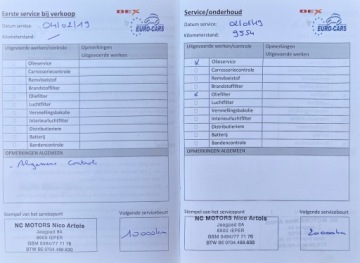 Eerste service bij verkoop
DEX
EURO-CARS
Datum service: 04/02/19
Kilometerstand:
Uitgevoerde werken/controle
Opmerkingen
Uitgevoerde werken
Olieservice
Carrosseriecontrole
Remvloeistof
Brandstoffilter
Oliefilter
Luchtfilter
Versnellingsbakolie
Interieurluchtfilter
Distributieriem
Batterij
Bandencontrole
OPMERKINGEN ALGEMEEN
- Algemene Controle
Stempel van het servicepunt
Volgende servicebeurt
NC MOTORS Nico Artois
8902 IEPER
GSM 0494/77 71 76
BTW BE 0704.488.430
10000km
Service/onderhoud
DEX
EURO-CARS
Datum service:
Kilometerstand: 9354
Uitgevoerde werken/controle
Opmerkingen
Uitgevoerde werken
Olieservice
Carrosseriecontrole
Remvloeistof
Brandstoffilter
Oliefilter
Luchtfilter
Versnellingsbakolie
Interieurluchtfilter
Distributieriem
Batterij
Bandencontrole
OPMERKINGEN ALGEMEEN
Stempel van het servicepunt
Volgende servicebeurt
NC MOTORS Nico Artois
8902 IEPER
GSM 0494/77 71 76
BTW BE 0704.488.430
20000km